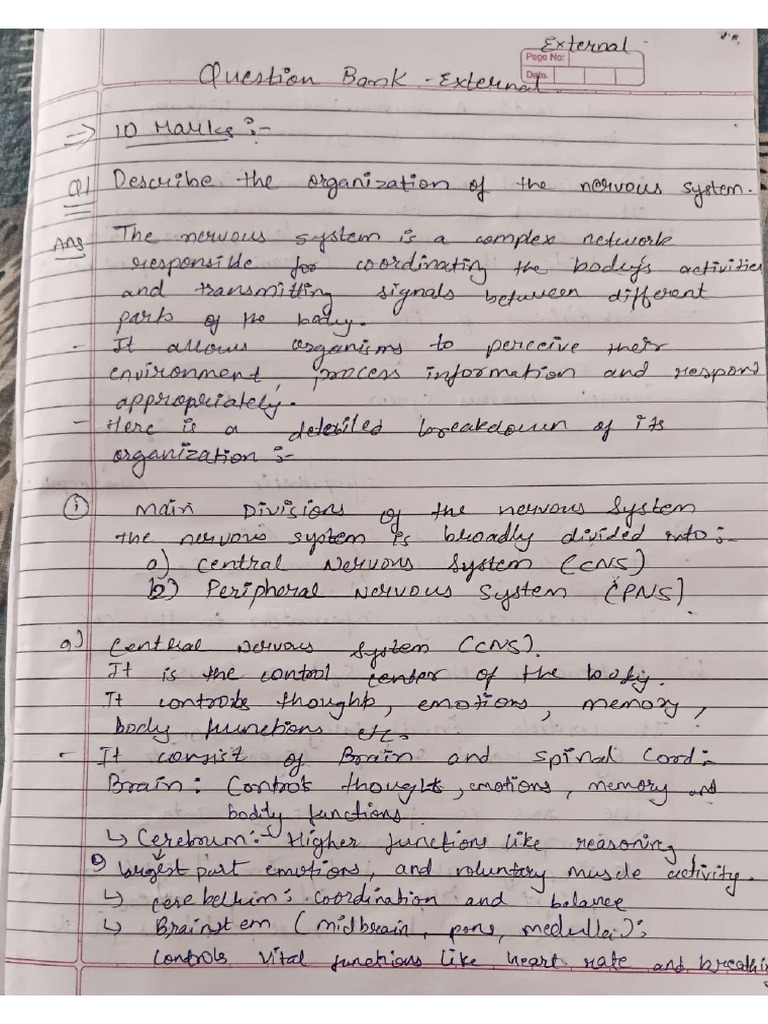 External
Page No:
Date
Question Bank - External
=> 10 Marks :-
Q1 Describe the organization of the nervous system.
Ans The nervous system is a complex network
responsible for coordinating the body's activities
and transmitting signals between different
parts of the body.
- It allows organisms to perceive their
environment, process information and respond
appropriately.
- Here is a detailed breakdown of its
organization :-
(i) Main Divisions of the nervous System
the nervous system is broadly divided into :-
a) Central Nervous System (CNS)
b) Peripheral Nervous System (PNS)
a) Central Nervous System (CNS).
It is the control center of the body.
It controls thought, emotions, memory,
body functions etc.
- It consist of Brain and spinal Cord :
Brain : Controls thought, emotions, memory and
bodily functions
↳ Cerebrum :- Higher functions like reasoning
largest part emotions, and voluntary muscle activity.
↳ cerebellum : coordination and balance
↳ Brainstem (midbrain, pons, medulla) :
Controls vital functions like heart rate and